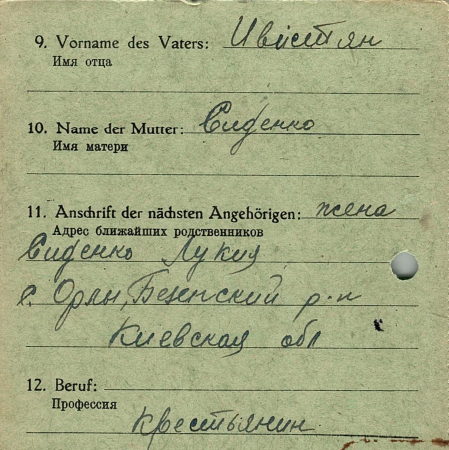 9. Vorname des Vaters:
Имя отца
10. Name der Mutter: Сиденко
Имя матери
11. Anschrift der nächsten Angehörigen: жена
Адрес ближайших родственников
Сиденко Лукия
с. р-н
Киевская обл
12. Beruf:
Профессия
Крестьянин